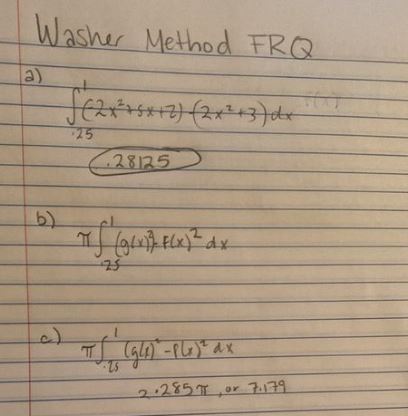 Washer Method FRQ
a)
∫.25^1 (-2x²+5x+2)-(2x²+3)dx f(x)
.28125
b) π∫.25^1 (g(x))²-f(x)² dx
c) π∫.25^1 (g(x)²-f(x)² dx
2.285π, or 7.179